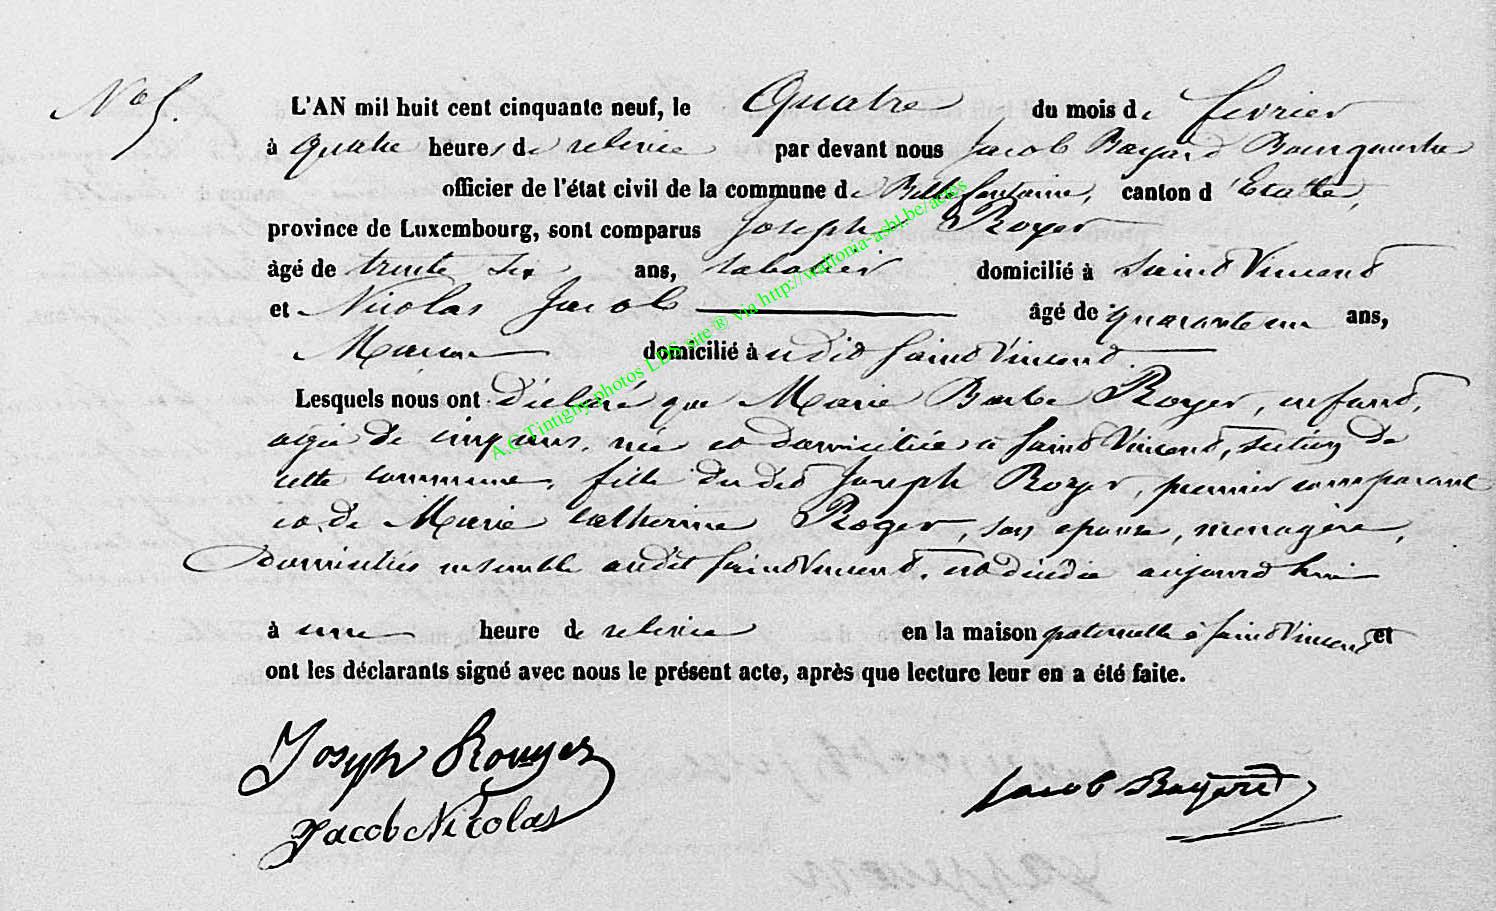 No 5.
L'AN mil huit cent cinquante neuf, le Quatre du mois de fevrier
à Quatre heures de relevée par devant nous Jacob Bayard Bourgmestre
officier de l'état civil de la commune de Bellefontaine, canton d'Etalle,
province de Luxembourg, sont comparus Joseph Royer
âgé de trente six ans, sabotier domicilié à Saind Vincend
et Nicolas Jacob âgé de quarante un ans,
Maçon domicilié à udid Saind Vincend
Lesquels nous ont Déclaré que Marie Barbe Royer enfand,
agée de cinq ans, née et domiciliée à Saind Vincend, section de
cette commune, fille dudid Joseph Royer, premier comparant
et de Marie Catherine Roger, son epouse, menagère,
Domiciliés ensemble audit Saind Vincend, est décédée aujourd'hui
à une heure de relevée en la maison paternelle à Saind Vincend et
ont les déclarants signé avec nous le présent acte, après que lecture leur en a été faite.
Joseph Rouyer
Jacob Nicolas
Jacob Bayard
A.C Tintigny photos LDS site ® via http://wallonia-asbl.be/actes